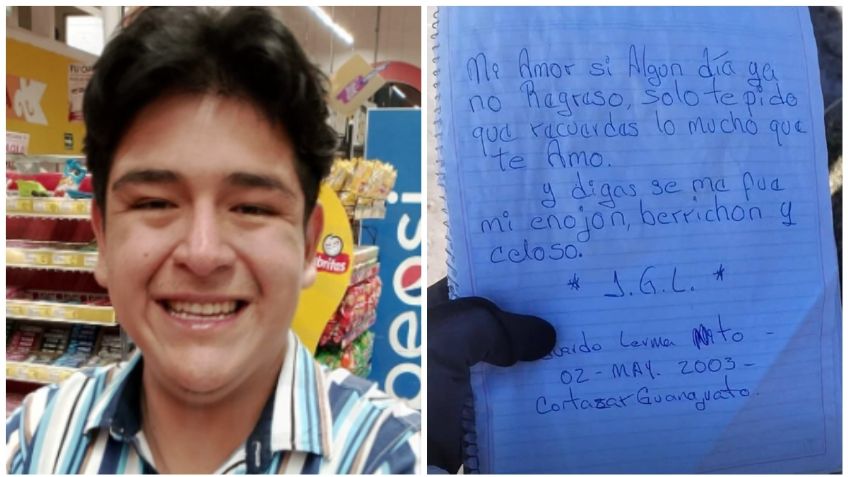 abritas
pepsi
Mi Amor si Algun día ya
no Regreso, solo te pido
que recuerdes lo mucho que
te Amo.
y digas se me fue
mi enojon, berrichon y
celoso.
* J.G.L. *
Lerma -
02 - MAY. 2003 -
Cortazar Guanajuato.